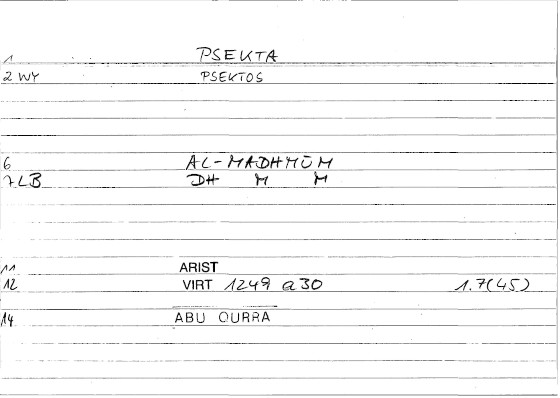 1 PSEKTA
2 WY PSEKTOS
6 AL-MADHMŪM
7 LB DH M M
11 ARIST
12 VIRT 1249 a30 1.7(45)
14 ABU QURRA